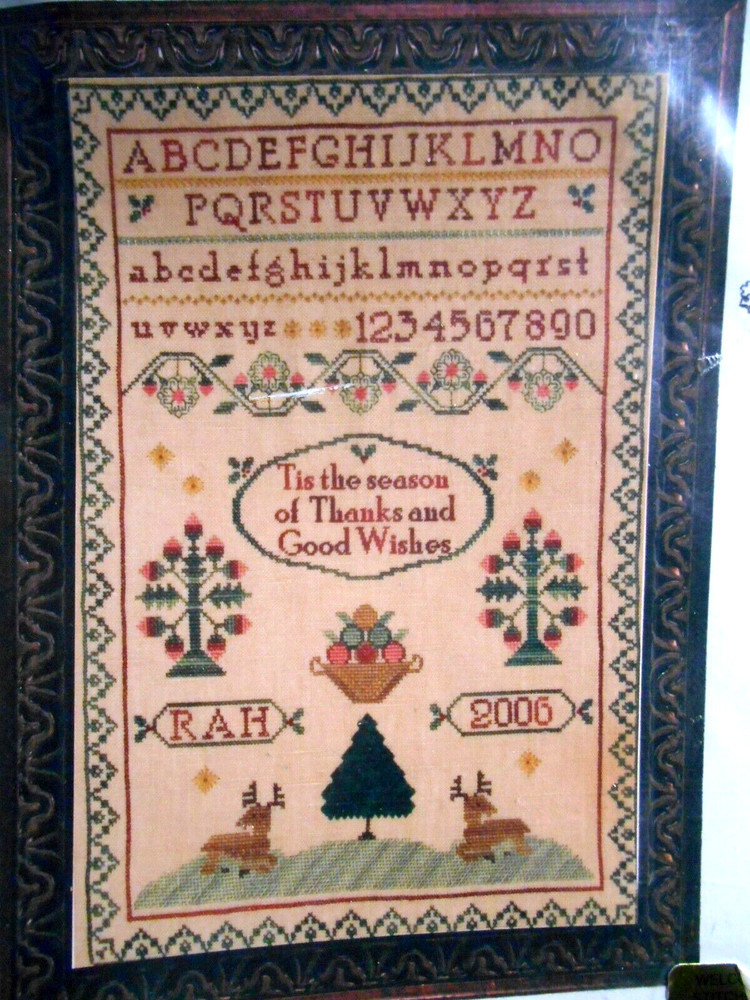 ABCDEFGHIJKLMNO
PQRSTUVWXYZ
abcdefghijklmnopqrst
uvwxyz 1234567890
Tis the season
of Thanks and
Good Wishes
RAH 2006